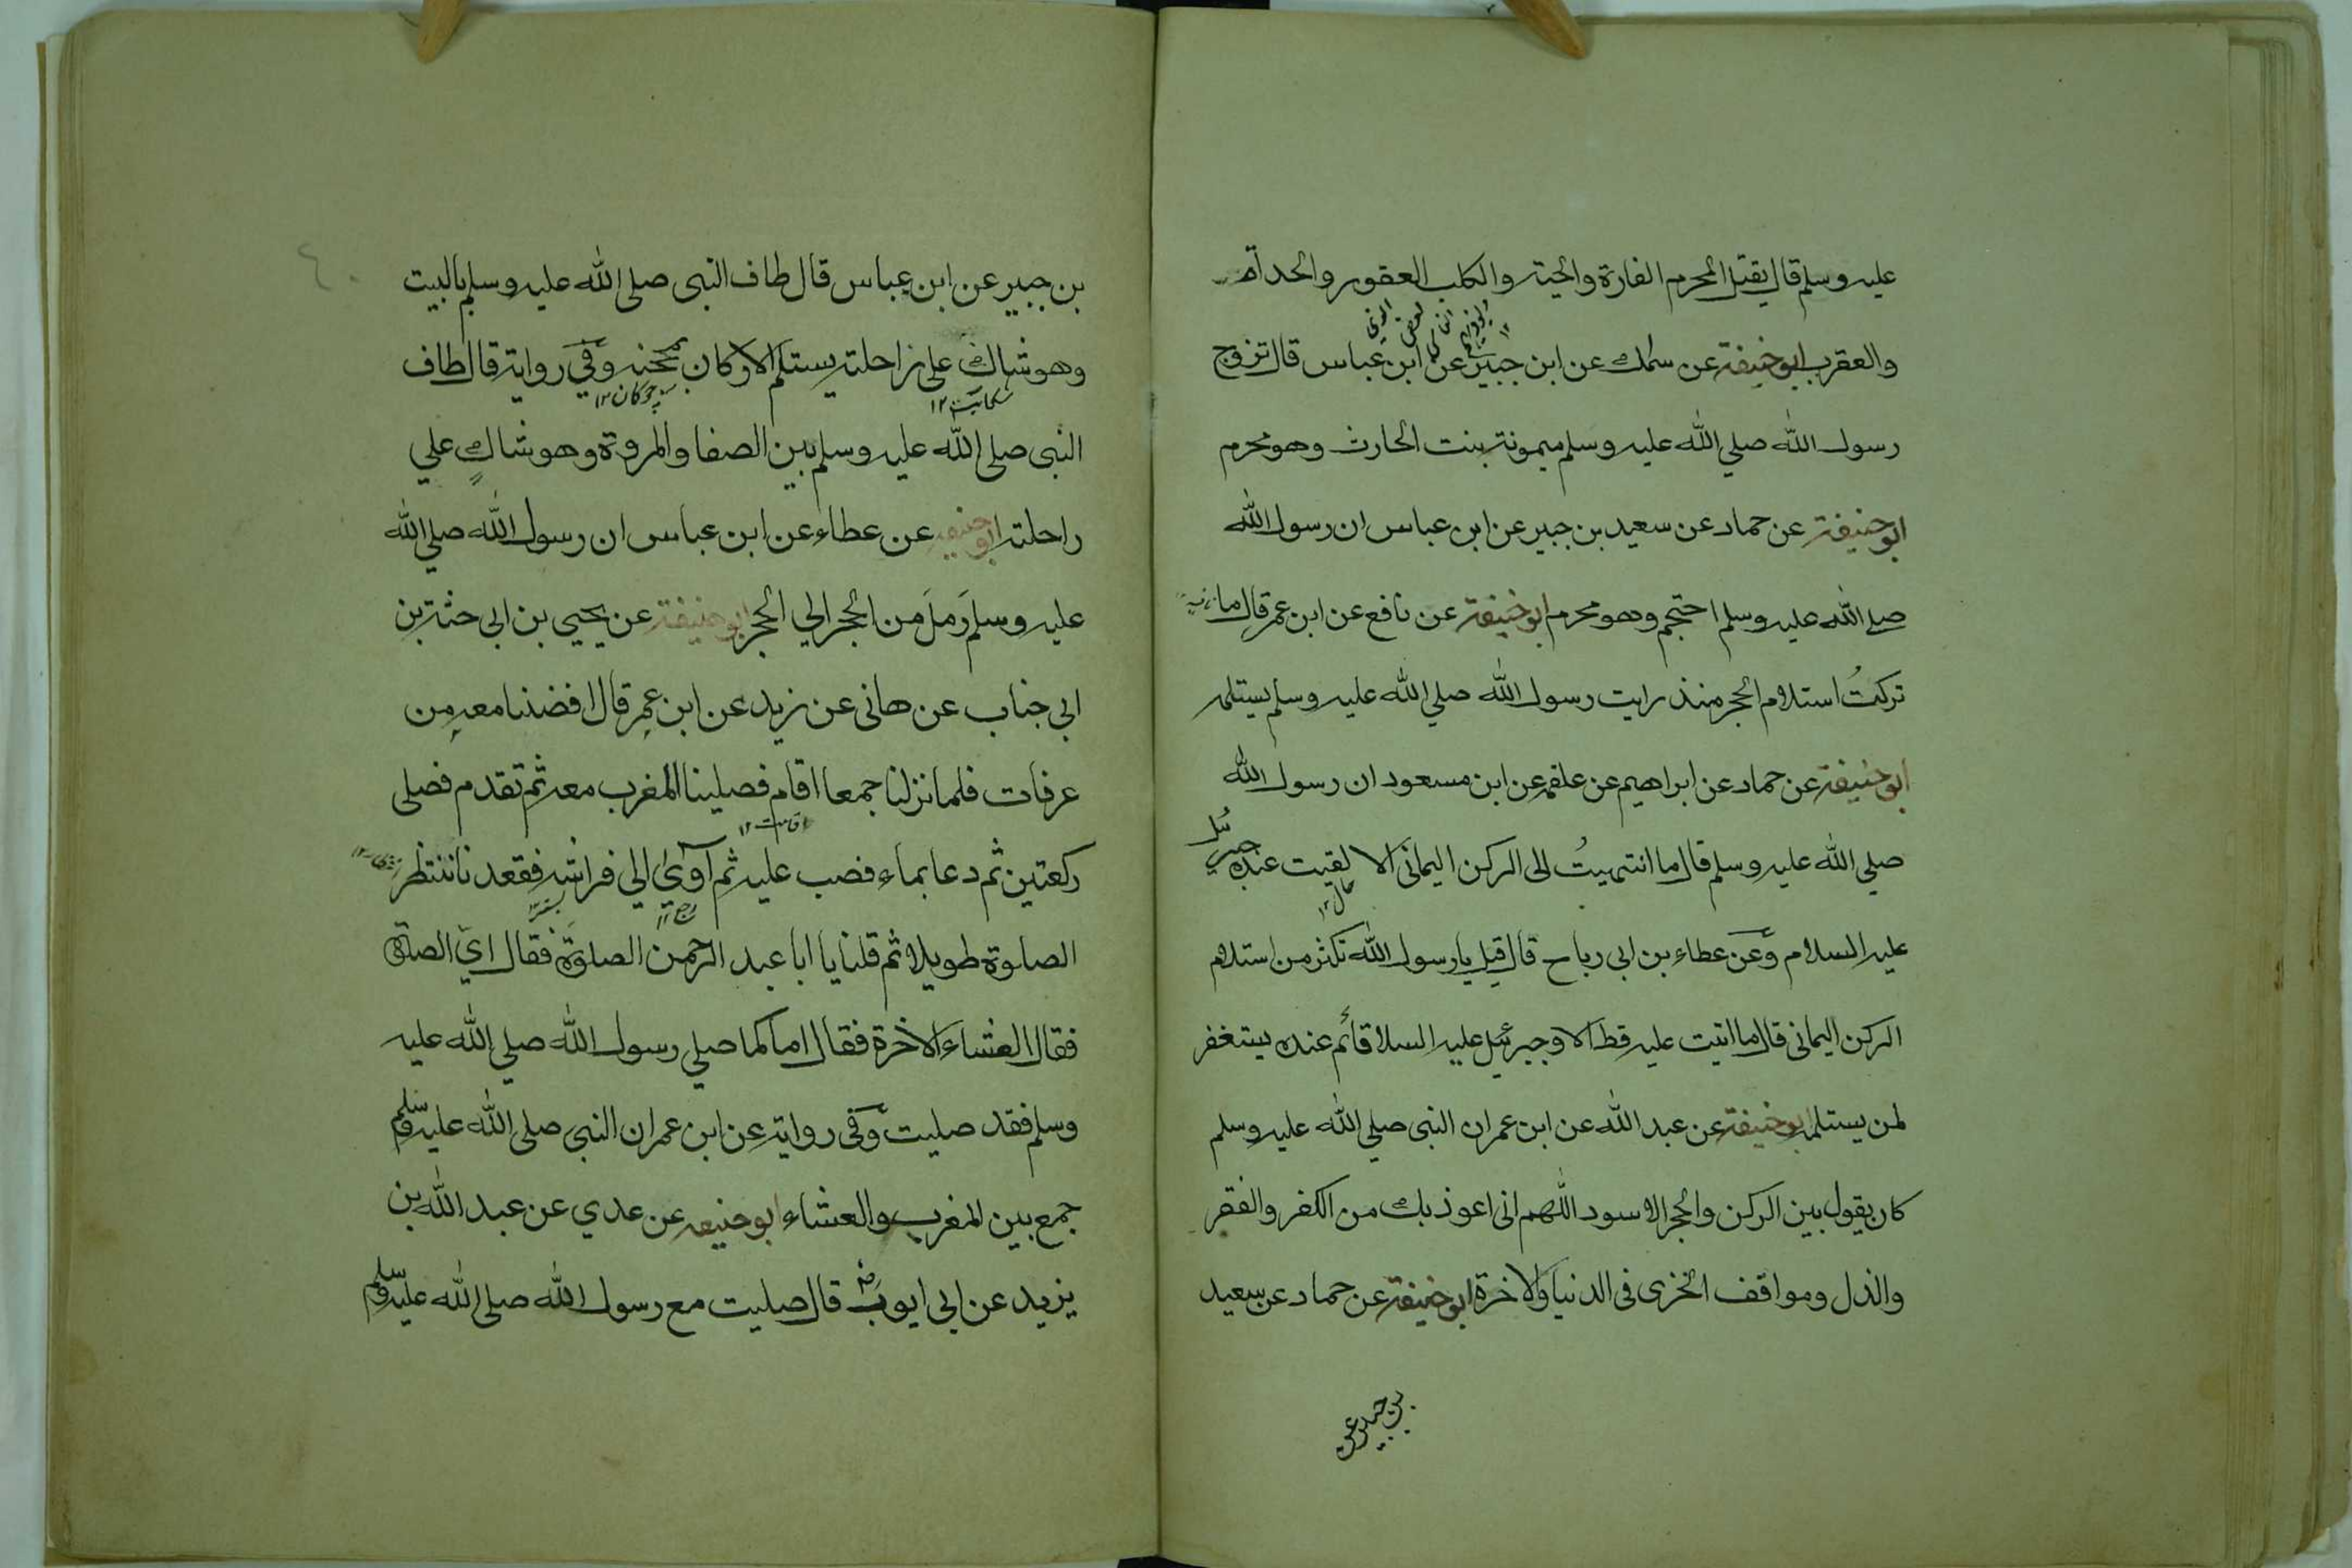 عليه وسلم قال يقتل المحرم الفارة والحية والكلب العقور والحدأة
والعقرب ابوحنيفة عن سماك عن ابن جبير عن ابن عباس قال تزوج
رسول الله صلي الله عليه وسلم ميمونة بنت الحارث وهو محرم
ابوحنيفة عن حماد عن سعيد بن جبير عن ابن عباس ان رسول الله
صلي الله عليه وسلم احتجم وهو محرم ابوحنيفة عن نافع عن ابن عمر قال ما
تركتُ استلام الحجر منذ رايت رسول الله صلي الله عليه وسلم يستلمه
ابوحنيفة عن حماد عن ابراهيم عن علقمه عن ابن مسعود ان رسول الله
صلي الله عليه وسلم قال ما انتهيتُ الى الركن اليمانى الا لقيت عنده جبرئيل
عليه السلام وعن عطاء بن ابى رباح قال قيل يا رسول الله تكثر من استلام
الركن اليمانى قال ما اتيت عليه قط الا وجبرئيل عليه السلا قائم عنده يستغفر
لمن يستلمه ابوحنيفة عن عبد الله عن ابن عمر ان النبى صلي الله عليه وسلم
كان يقول بين الركن والحجر الاسود اللهم انى اعوذ بك من الكفر والفقر
والذل ومواقف الخزى فى الدنيا والاخرة ابوحنيفة عن حماد عن سعيد
بن جبير عن
٤٠
بن جبير عن ابن عباس قال طاف النبى صلى الله عليه وسلم بالبيت
وهو شاك على راحلته يستلم الاركان بمحجنه وفي رواية قال طاف
شكايت ١٢ چوكان ١٢
النبى صلى الله عليه وسلم بين الصفا والمروة وهو شاكٍ علي
راحلته ابوحنيفه عن عطاء عن ابن عباس ان رسول الله صلي الله
عليه وسلم رَمَلَ من الحجر الي الحجر ابوحنيفة عن يحيي بن ابى حثة بن
ابى جناب عن هانى عن زيد عن ابن عمر قال افضنا معه من
عرفات فلما نزلنا جمعا اقام فصلينا المغرب معه ثم تقدم فصلى
اقامت ١٢
ركعتين ثم دعا بماء فصب عليه ثم آوي الي فراشه فقعدنا ننتظر
الصلوة طويلا ثم قلنا يا ابا عبد الرحمن الصلوةَ فقال ايّ الصلوة
فقال العشاء الاخرة فقال اما كما صلي رسول الله صلي الله عليه
وسلم فقد صليت وفى رواية عن ابن عمر ان النبى صلى الله عليه وسلم
جمع بين المغرب والعشاء ابوحنيفه عن عدي عن عبد الله بن
يزيد عن ابى ايوب رض قال صليت مع رسول الله صلى الله عليه وسلم